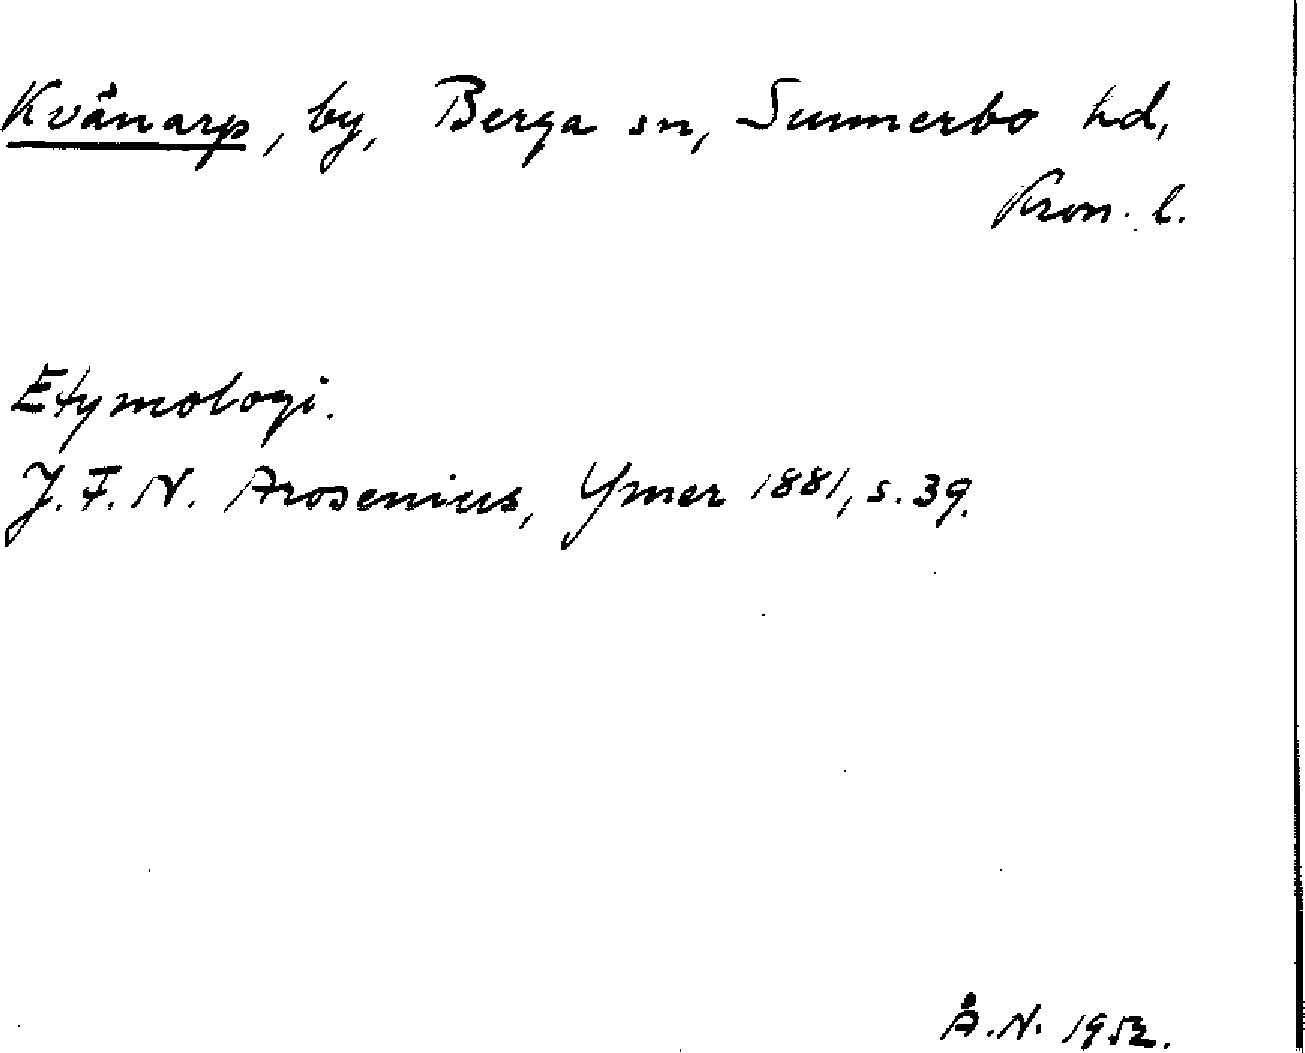 Kvånarp, by, Berga sn, Sunnerbo hd,
Kron. l.
Etymologi.
J. F. N. Arosenius, Ymer 1881, s. 39.
Å. N. 1952.